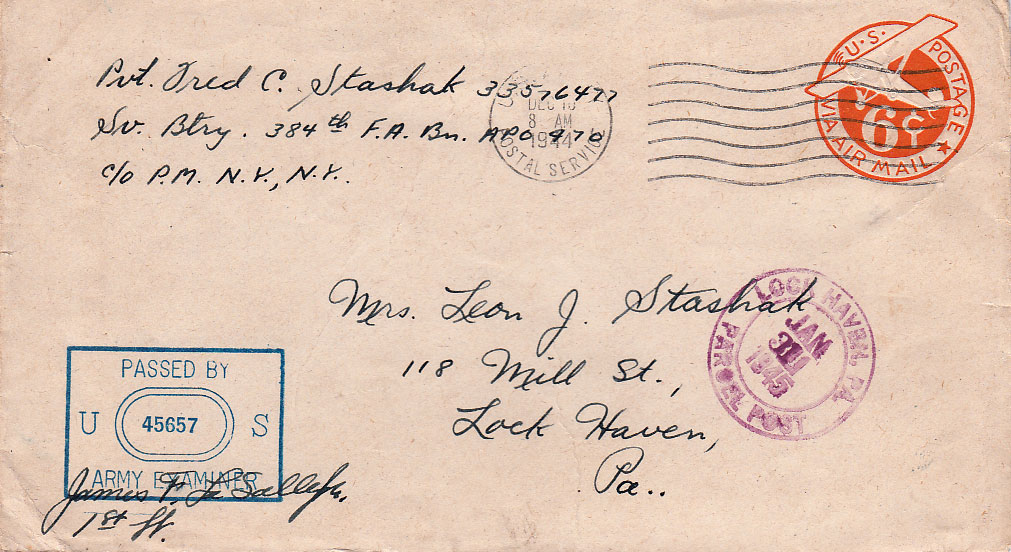 Pvt. Fred C. Stashak 33576477
Sv. Btry. 384th F.A. Bn. APO 470
c/o P.M. N.Y., N.Y.
DEC 18
8 AM
1944
POSTAL SERVICE
U.S. POSTAGE
6¢
VIA AIR MAIL
Mrs. Leon J. Stashak
118 Mill St.,
Lock Haven,
Pa..
LOCK HAVEN, PA.
JAN
1945
PARCEL POST
PASSED BY
U 45657 S
ARMY EXAMINER
James F.
1st Lt.